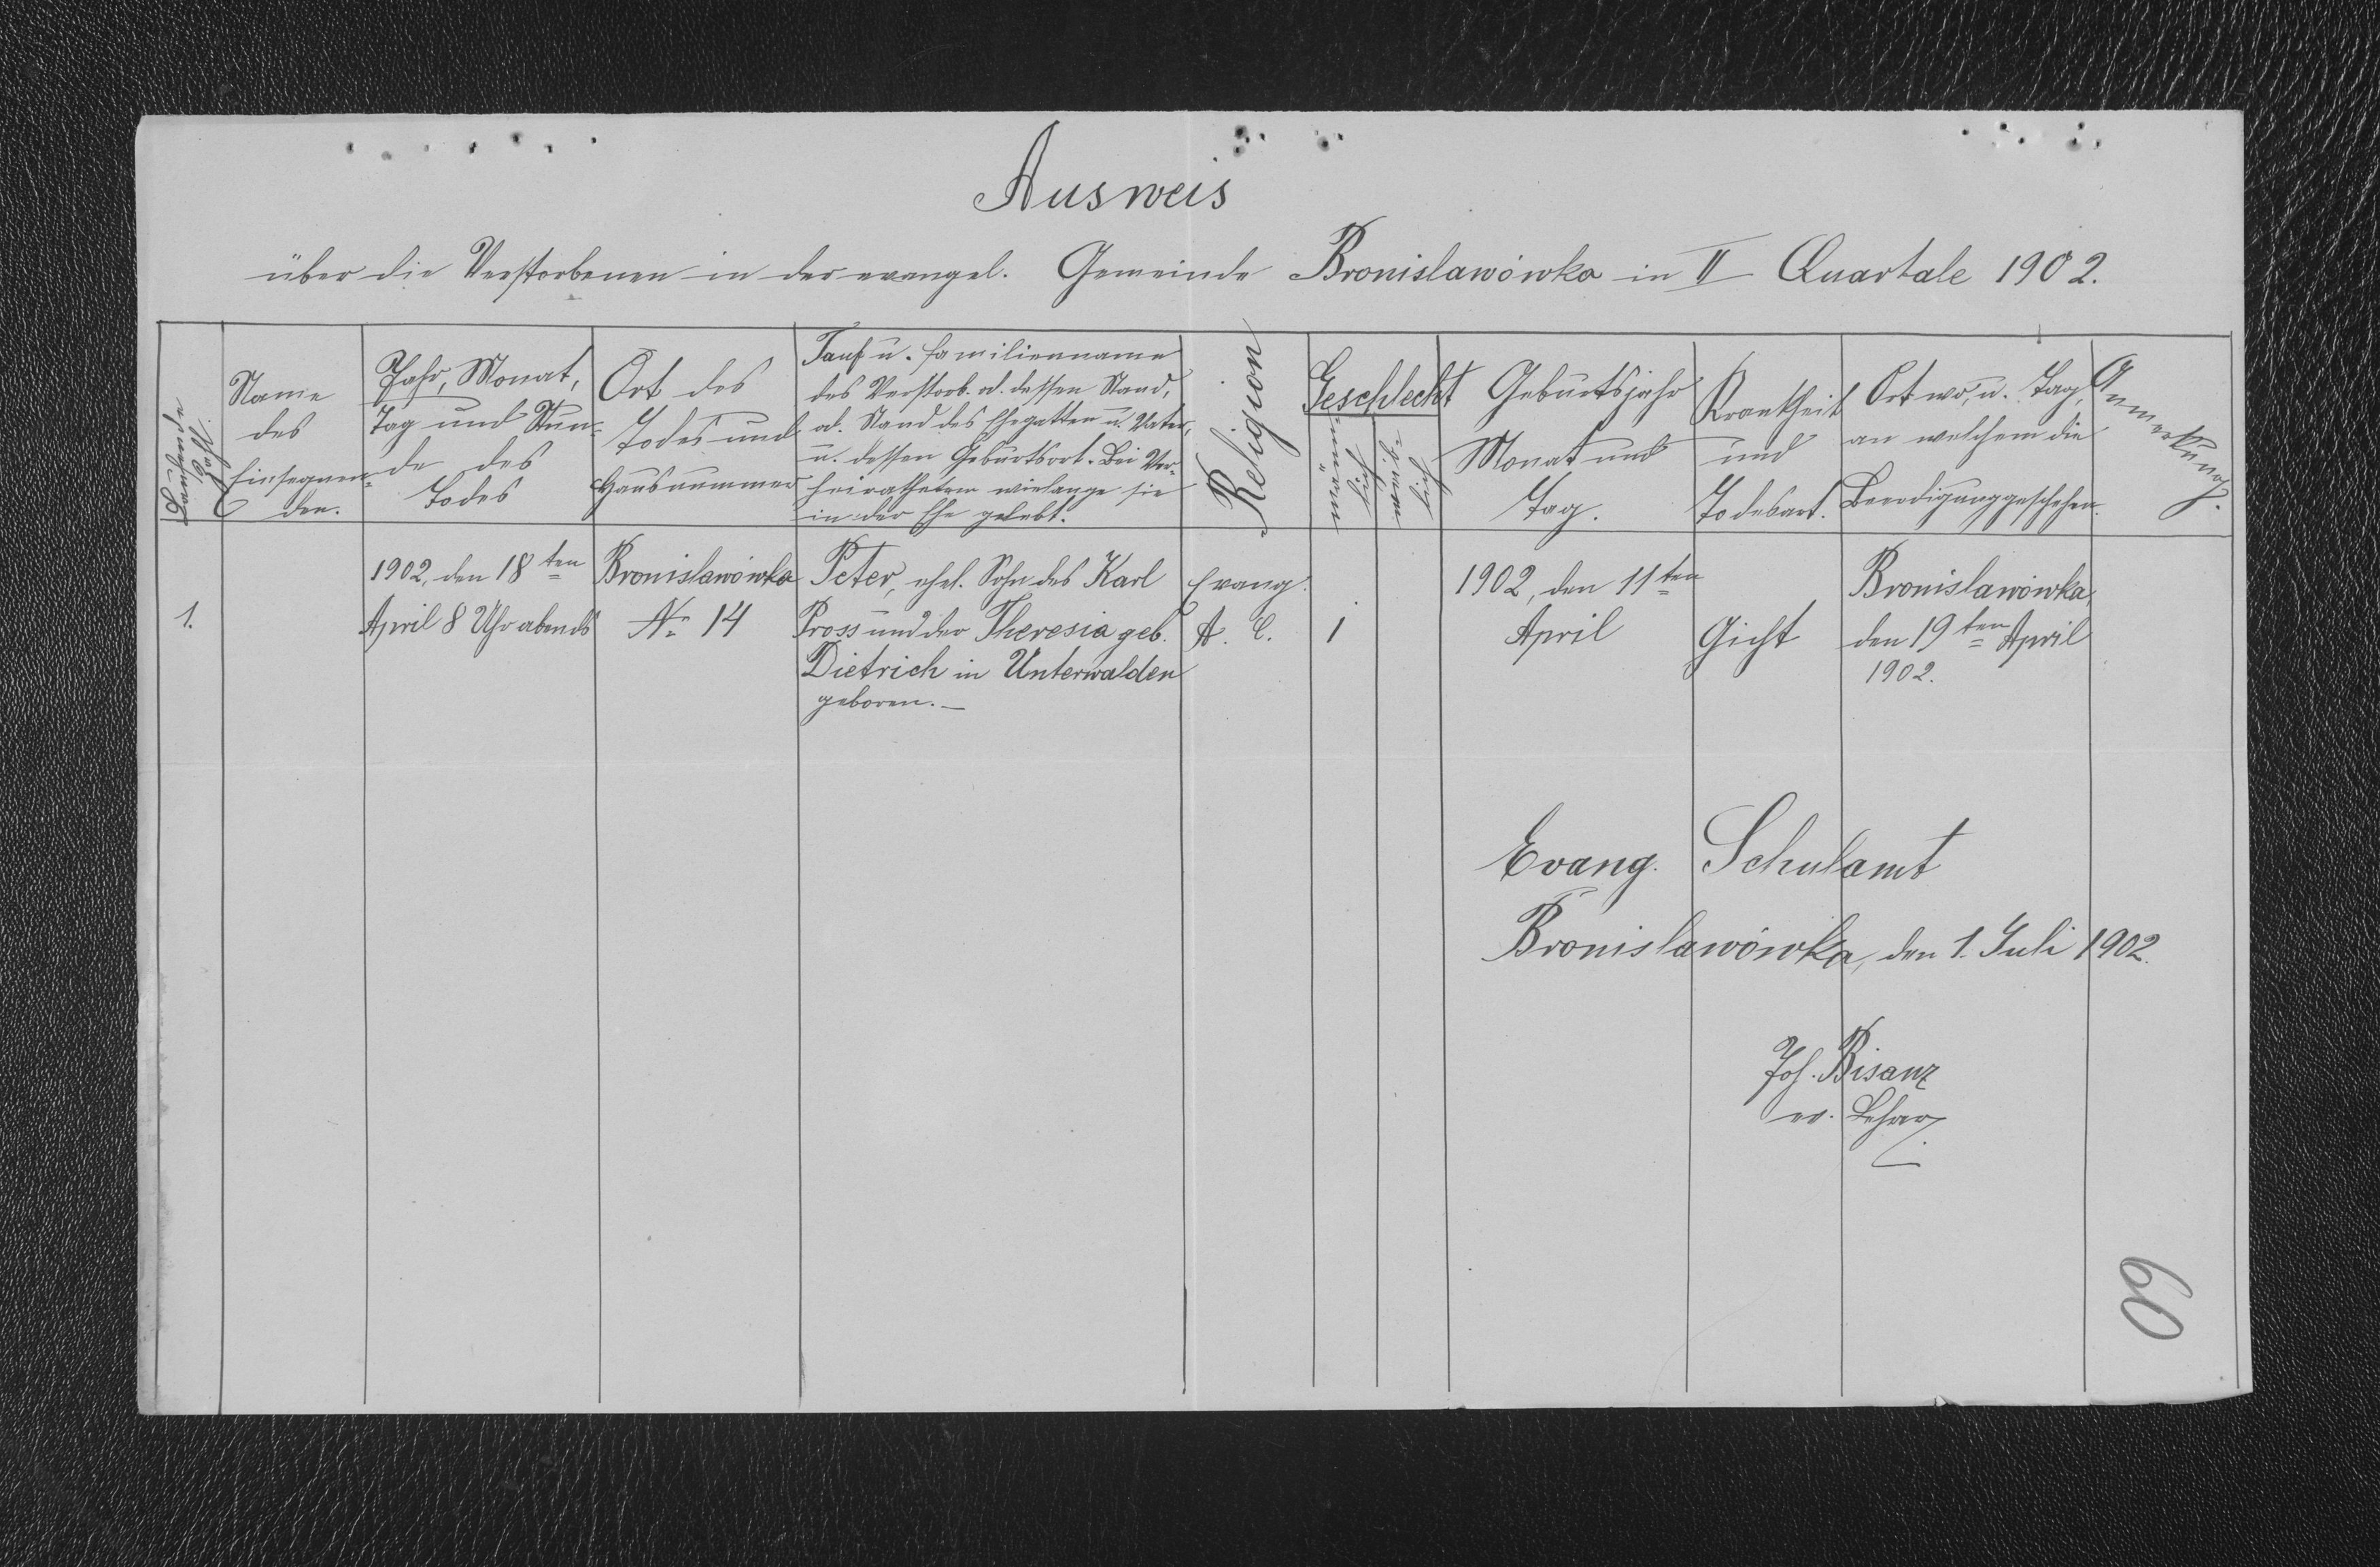 Ausweis
über die Verstorbenen in der evangel. Gemeinde Bronislawówka in II Quartale 1902.
Laufende
Zahl.
Name
des
Einsegnen-
den.
Jahr, Monat,
Tag und Stun-
de des
Todes
Ort des
Todes und
Hausnummer
Tauf u. Familienname
des Verstorb. od. dessen Stand,
od. Stand des Ehegatten u. Vater,
u. dessen Geburtsort. Bei Ver-
heiratheten wielange sie
in der Ehe gelebt.
Religion
Geschlecht
män-
lich
weib-
lich
Geburtsjahr
Monat und
Tag.
Krankheit
und
Todesart.
Ort wo, u. Tag,
an welchem die
Beerdigung geschehen.
Anmerkung.
1.
1902, den 18ten
April 8 Uhr abends
Bronislawówka
No 14
Peter, ehel. Sohn des Karl
Pross und der Theresia geb.
Dietrich in Unterwalden
geboren.—
Evang.
A. C.
1
1902, den 11ten
April
Gicht
Bronislawówka,
den 19ten April
1902.
Evang. Schulamt
Bronislawówka, den 1. Juli 1902.
Joh. Bisanz
ev. Lehrer
60